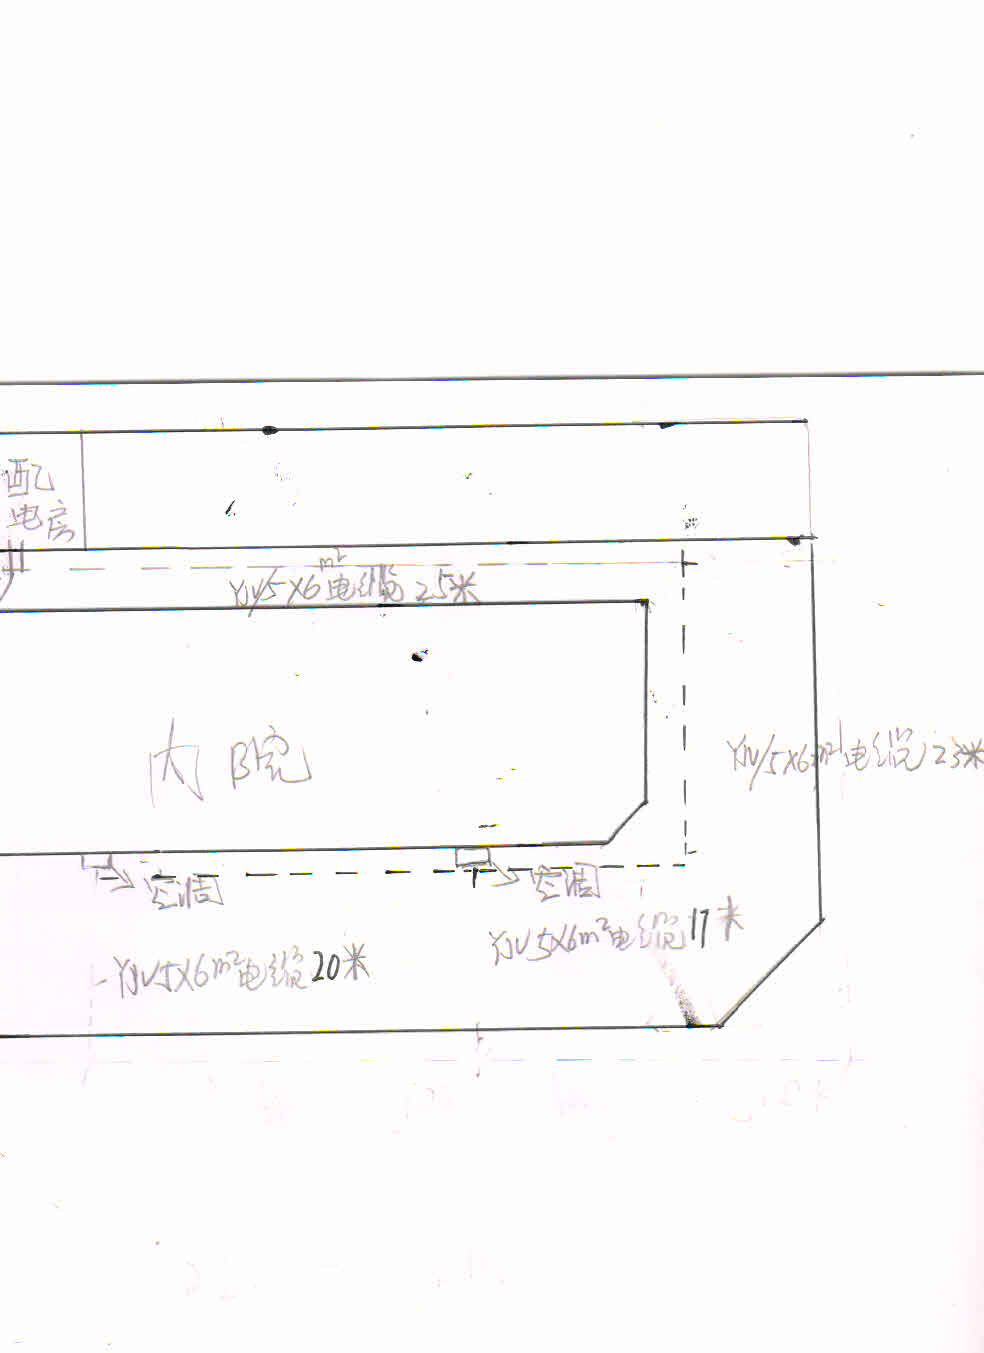 配
电房
YJV5X6m²电缆25米
内院
YJV5X6m²电缆23米
空调
空调
YJV5X6m²电缆17米
YJV5X6m²电缆20米